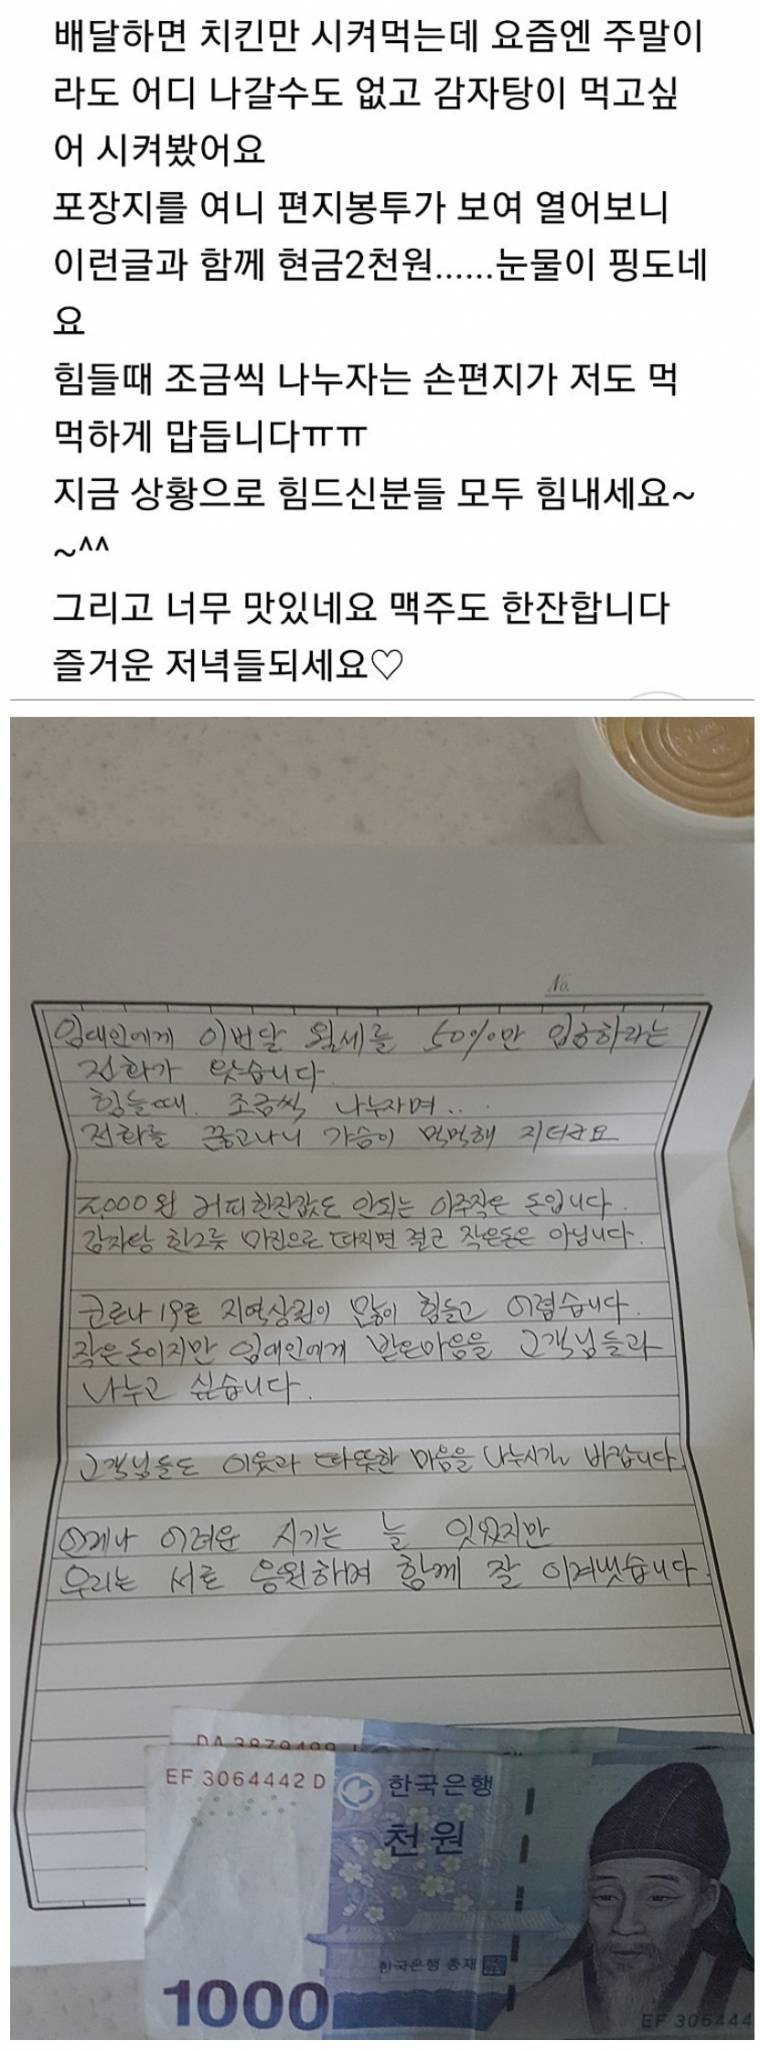 배달하면 치킨만 시켜먹는데 요즘엔 주말이
라도 어디 나갈수도 없고 감자탕이 먹고싶
어 시켜봤어요
포장지를 여니 편지봉투가 보여 열어보니
이런글과 함께 현금2천원......눈물이 핑도네
요
힘들때 조금씩 나누자는 손편지가 저도 먹
먹하게 맙듭니다ㅠㅠ
지금 상황으로 힘드신분들 모두 힘내세요~
~^^
그리고 너무 맛있네요 맥주도 한잔합니다
즐거운 저녁들되세요♡
No.
임대인에게 이번달 월세를 50%만 입금하라는
전화가 왔습니다.
힘들때. 조금씩 나누자며...
전화를 끊고나니 가슴이 먹먹해 지더군요
2,000원 커피한잔값도 안되는 아주작은 돈입니다.
감자탕 한그릇 마진으로 따지면 결코 작은돈은 아닙니다.
코로나 19로 지역상권이 많이 힘들고 어렵습니다.
작은돈이지만 임대인에게 받은마음을 고객님들과
나누고 싶습니다.
고객님들도 이웃과 따뜻한 마음을 나누시길 바랍니다.
언제나 어려운 시기는 늘 있었지만
우리는 서로 응원하며 함께 잘 이겨냈습니다.
EF 3064442 D
한국은행
천원
한국은행 총재
1000